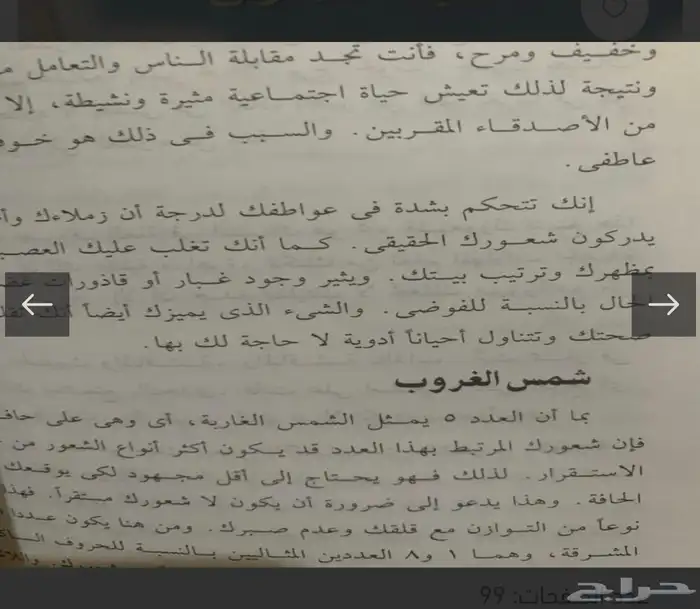 وخفيف ومرح، فأنت تجد مقابلة الناس والتعامل
ونتيجة لذلك تعيش حياة اجتماعية مثيرة ونشيطة، إلا
من الأصدقاء المقربين. والسبب فى ذلك هو
عاطفى.
إنك تتحكم بشدة فى عواطفك لدرجة أن زملاءك
يدركون شعورك الحقيقى. كما أنك تغلب عليك
بمظهرك وترتيب بيتك. ويثير وجود غبار أو قاذورات
الحال بالنسبة للفوضى. والشىء الذى يميزك أيضاً أنك
صحتك وتتناول أحياناً أدوية لا حاجة لك بها.
شمس الغروب
بما أن العدد ٥ يمثل الشمس الغاربة، أى وهى على
فإن شعورك المرتبط بهذا العدد قد يكون أكثر أنواع الشعور من
الاستقرار. لذلك فهو يحتاج إلى أقل مجهود لكى يوقعك
الحافة. وهذا يدعو إلى ضرورة أن يكون لا شعورك مستقراً. فهذا
نوعاً من التوازن مع قلقك وعدم صبرك. ومن هنا يكون عدد
المشرقة، وهما ١ و٨ العددين المثاليين بالنسبة للحروف
حراج
الصفحات: 99